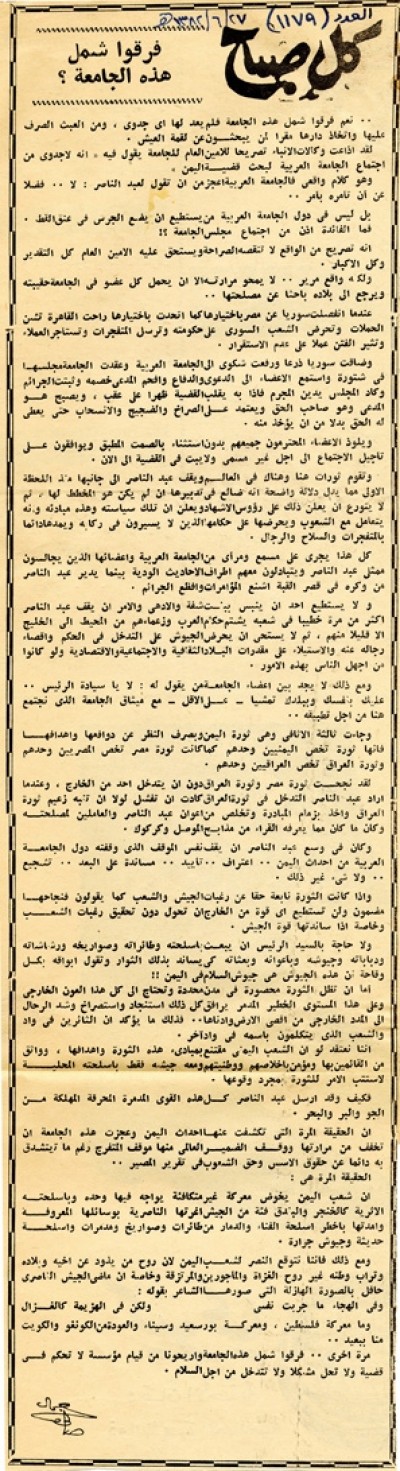 العدد (١١٧٩) ٢٧/٦/١٣٨٢هـ
كل صباح
فرقوا شمل
هذه الجامعة ؟
٠٠ نعم فرقوا شمل هذه الجامعة فلم يعد لها اى جدوى ، ومن العبث الصرف
عليها واتخاذ دارها مقرا لمن يبحثون عن لقمة العيش ٠
لقد اذاعت وكالات الانباء تصريحا للامين العام للجامعة يقول فيه « انه لاجدوى من
اجتماع الجامعة العربية لبحث قضية اليمن »
وهو كلام واقعى فالجامعة العربية اعجز من ان تقول لعبد الناصر : لا ٠٠ فضلا
عن ان تأمره بأمر ٠٠
بل ليس فى دول الجامعة العربية من يستطيع ان يضع الجرس فى عنق القط ٠
فما الفائدة اذن من اجتماع مجلس الجامعة ؟!
انه تصريح من الواقع لا تنقصه الصراحة ويستحق عليه الامين العام كل التقدير
وكل الاكبار ٠
ولكنه واقع مرير ٠٠ لا يمحو مرارته الا ان يحمل كل عضو فى الجامعة حقيبته
ويرجع الى بلاده باحثا عن مصلحتها ٠٠
عندما انفصلت سوريا عن مصر باختيارها كما اتحدت باختيارها راحت القاهرة تشن
الحملات وتحرض الشعب السورى على حكومته وترسل المتفجرات وتستأجر العملاء
وتثير الفتن عملا على عدم الاستقرار ٠
وضاقت سوريا ذرعا ورفعت شكوى الى الجامعة العربية وعقدت الجامعة مجلسها
فى شتورة واستمع الاعضاء الى الدعوى والدفاع وافحم المدعى خصمه وثبتت الجرائم
وكاد المجلس يدين المجرم فاذا به يقلب القضية ظهرا على عقب ، ويصبح هو
المدعى وهو صاحب الحق ويعتمد على الصراخ والضجيج والانسحاب حتى يعطى
له الحق بدلا من ان يؤخذ منه ٠
ويلوذ الاعضاء المحترمون جميعهم بدون استثناء بالصمت المطبق ويوافقون على
تأجيل الاجتماع الى اجل غير مسمى ولا يبت فى القضية الى الان ٠
وتقوم ثورات هنا وهناك فى العالم ويقف عبد الناصر الى جانبها منذ اللحظة
الاولى مما يدل دلالة واضحة انه ضالع فى تدبيرها ان لم يكن هو المخطط لها ، ثم
لا يتورع ان يعلن ذلك على رؤوس الاشهاد ويعلن ان تلك سياسته وهذه مبادئه وانه
يتعامل مع الشعوب ويحرضها على حكامها الذين لا يسيرون فى ركابه ويمدها دائما
بالمتفجرات والسلاح والرجال ٠
كل هذا يجرى على مسمع ومرأى من الجامعة العربية واعضائها الذين يجالسون
ممثل عبد الناصر ويتبادلون معهم اطراف الاحاديث الودية بينما يدير عبد الناصر
من وكره فى قصر القبة اشنع المؤامرات وافظع الجرائم ٠
و لا يستطيع احد ان ينبس ببنت شفة والادهى والامر ان يقف عبد الناصر
اكثر من مرة خطيبا فى شعبه يشتم حكام العرب وزعماءهم من المحيط الى الخليج
الا قليلا منهم ، ثم لا يستحى ان يحرض الجيوش على التدخل فى الحكم واقصاء
رجاله عنه والاستيلاء على مقدرات البلاد الثقافية والاجتماعية والاقتصادية ولو كانوا
من اجهل الناس بهذه الامور ٠
ومع ذلك لا يجد بين اعضاء الجامعة من يقول له : لا يا سيادة الرئيس ٠٠
عليك بنفسك وببلدك تمشيا ــ على الاقل ــ مع ميثاق الجامعة الذى نجتمع
هنا من اجل تطبيقه ٠٠
وجاءت ثالثة الاثافى وهى ثورة اليمن وبصرف النظر عن دوافعها واهدافها
فانها ثورة تخص اليمنيين وحدهم كما كانت ثورة مصر تخص المصريين وحدهم
وثورة العراق تخص العراقيين وحدهم ٠
لقد نجحت ثورة مصر وثورة العراق دون ان يتدخل احد من الخارج ، وعندما
اراد عبد الناصر التدخل فى ثورة العراق كادت ان تفشل لولا ان تنبه زعيم ثورة
العراق واخذ بزمام المبادرة وتخلص من اعوان عبد الناصر والعاملين لمصلحته
وكان ما كان مما يعرفه القراء من مذابح الموصل وكركوك ٠
وكان فى وسع عبد الناصر ان يقف نفس الموقف الذى وقفته دول الجامعة
العربية من احداث اليمن ٠٠ اعتراف ٠٠ تأييد ٠٠ مساندة على البعد ٠٠ تشجيع
٠٠ ولا شىء غير ذلك ٠
واذا كانت الثورة نابعة حقا عن رغبات الجيش والشعب كما يقولون فنجاحها
مضمون ولن تستطيع اى قوة من الخارج ان تحول دون تحقيق رغبات الشعب
وخاصة اذا ساندتها قوة الجيش ٠
ولا حاجة بالسيد الرئيس ان يبعث باسلحته وطائراته وصواريخه ورشاشاته
ودباباته وجيوشه وباعوانه وبعثاته كى يساند بذلك الثوار وتقول ابواقه بكل
وقاحة ان هذه الجيوش هى جيوش السلام فى اليمن !!
اما ان تظل الثورة محصورة فى مدن محددة وتحتاج الى كل هذا العون الخارجى
وعلى هذا المستوى الخطير المدمر يرافق كل ذلك استنجاد واستصراخ وشد الرحال
الى المدد الخارجى من اقصى الارض وادناها ٠٠ فذلك ما يؤكد ان الثائرين فى واد
والشعب الذى يتكلمون باسمه فى واد آخر ٠
اننا نعتقد لو ان الشعب اليمنى مقتنع بمبادىء هذه الثورة واهدافها ، وواثق
من القائمين بها ومؤمن باخلاصهم ووطنيتهم ومعه جيشه فقط باسلحته المحلية
لاستتب الامر للثورة بمجرد وقوعها ٠
فكيف وقد ارسل عبد الناصر كل هذه القوى المدمرة المحرقة المهلكة من
الجو والبر والبحر ٠
ان الحقيقة المرة التى تكشفت عنها احداث اليمن وعجزت هذه الجامعة ان
تخفف من مرارتها ووقف الضمير العالمى منها موقف المتفرج رغم ما يتشدق
به دائما عن حقوق الاسس وحق الشعوب فى تقرير المصير ٠٠
الحقيقة المرة هى :
ان شعب اليمن يخوض معركة غير متكافئة يواجه فيها وحده وباسلحته
الاثرية كالخنجر والبندق فئة من الجيش المرتها الناصرية بوسائلها المعروفة
وامدتها باخطر اسلحة الفناء والدمار من طائرات وصواريخ ومدمرات واسلحة
حديثة وجيوش جرارة ٠
ومع ذلك فاننا نتوقع النصر لشعب اليمن لان روح من يذود عن اخيه وبلاده
وتراب وطنه غير روح الغزاة والمأجورين والمرتزقة وخاصة ان ماضى الجيش الناصرى
حافل بالصورة الهازلة التى صورها الشاعر بقوله :
وفى الهيجاء ما جربت نفسى ولكن فى الهزيمة كالغزال
وما معركة فلسطين ، ومعركة بورسعيد وسيناء والعودة من الكونغو والكويت
منا ببعيد ٠٠
مرة اخرى ٠٠ فرقوا شمل هذه الجامعة واريحونا من قيام مؤسسة لا تحكم فى
قضية ولا تحل مشكلا ولا تتدخل من اجل السلام ٠